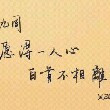 愿得一人心
白首不相離